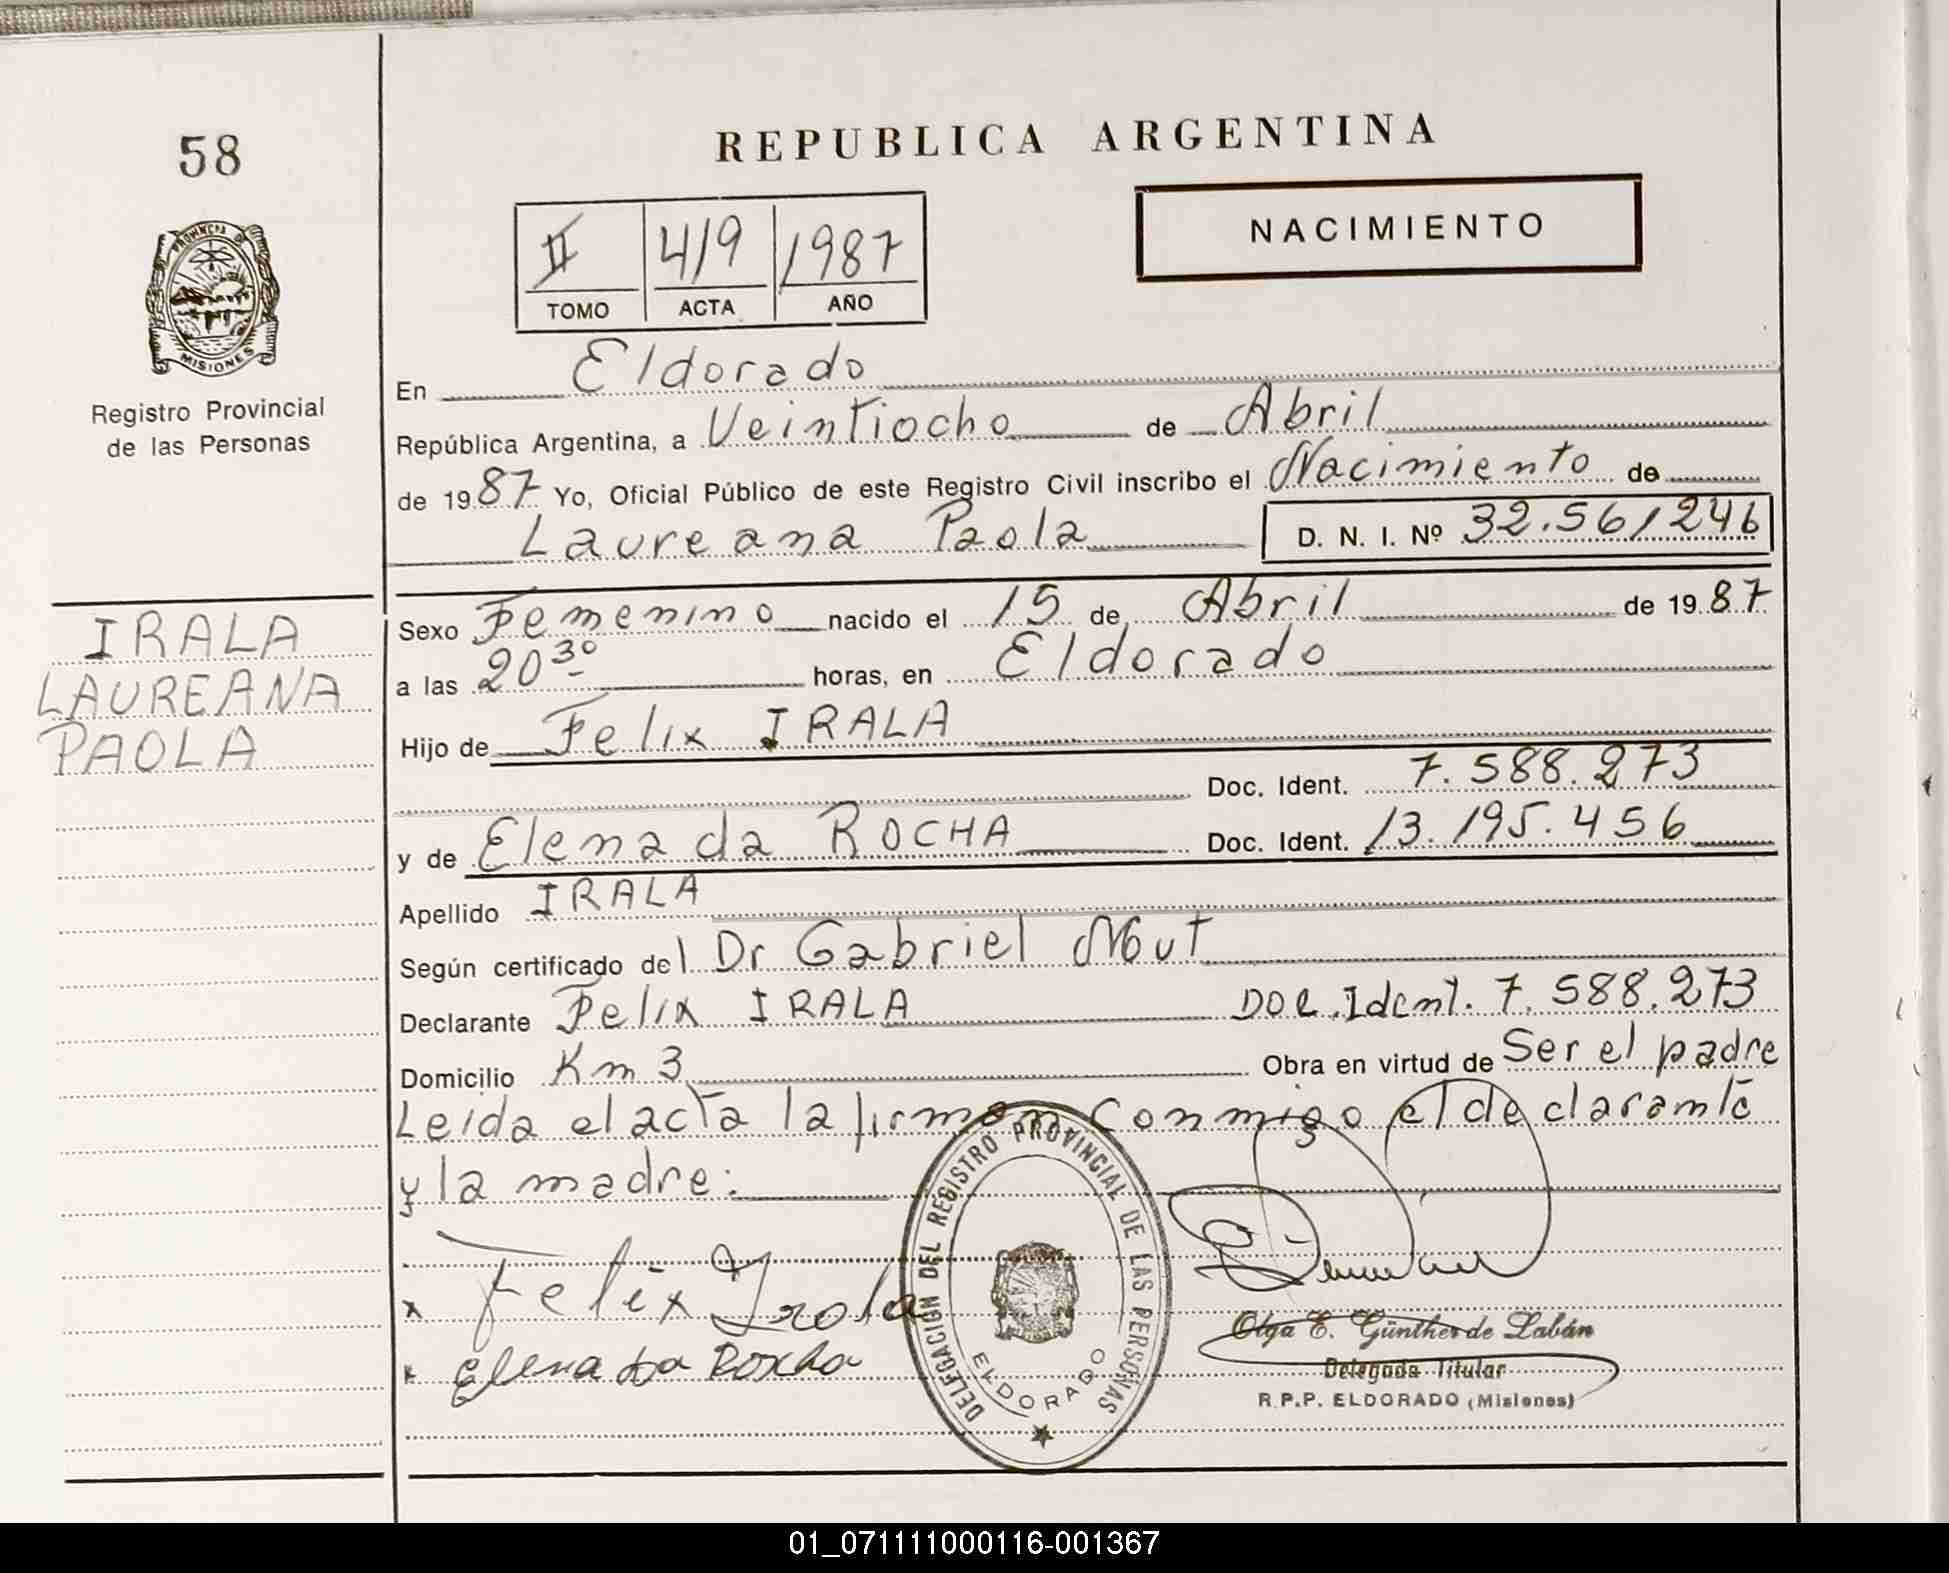 58
REPUBLICA ARGENTINA
NACIMIENTO
II 419 1987
TOMO ACTA AÑO
PROVINCIA DE MISIONES
Registro Provincial
de las Personas
En Eldorado
República Argentina, a Veintiocho de Abril
de 1987 Yo, Oficial Público de este Registro Civil inscribo el Nacimiento de
Laureana Paola D. N. I. Nº 32.561246
IRALA
LAUREANA
PAOLA
Sexo Femenino nacido el 15 de Abril de 1987
a las 20 30 horas, en Eldorado
Hijo de Felix IRALA
Doc. Ident. 7.588.273
y de Elena da ROCHA Doc. Ident. 13.195.456
Apellido IRALA
Según certificado del Dr Gabriel Mut
Declarante Felix IRALA Doc. Ident. 7.588.273
Domicilio Km 3 Obra en virtud de Ser el padre
Leida el acta la firman conmigo el declarante
y la madre:
x Felix Irala
x Elena da Rocha
DELEGACIÓN DEL REGISTRO PROVINCIAL DE LAS PERSONAS
ELDORADO
Olga E. Günther de Labán
Delegada Titular
R.P.P. ELDORADO (Misiones)
01_071111000116-001367